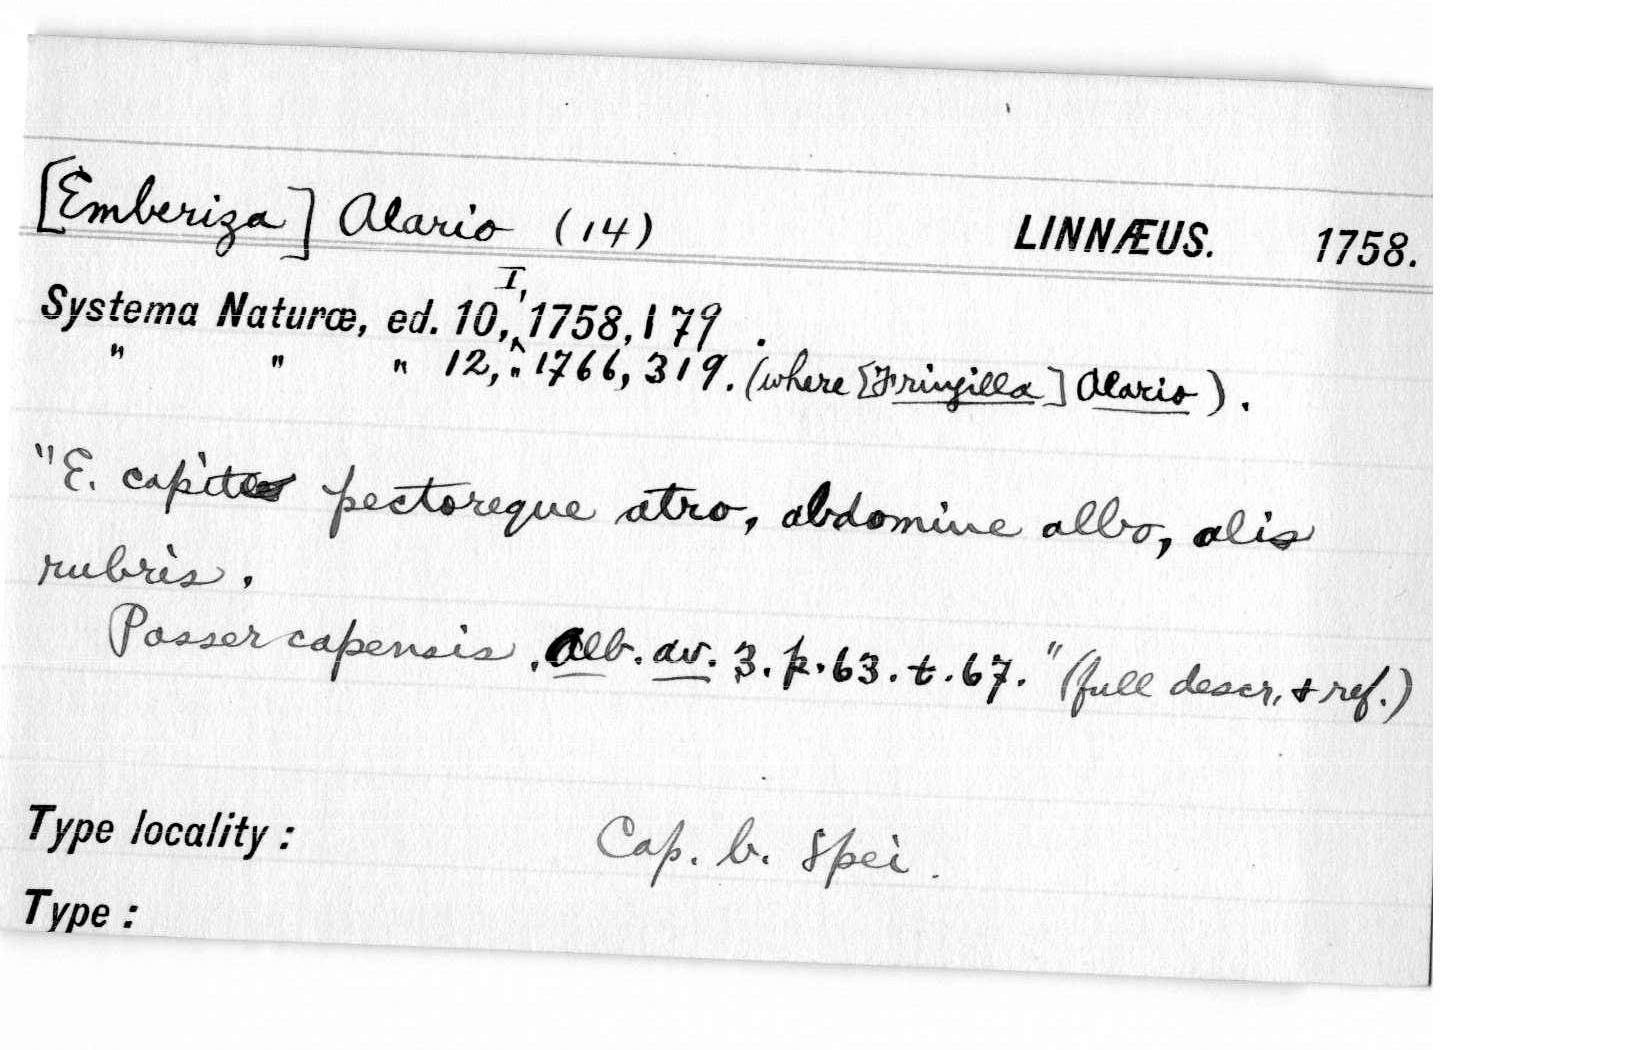 [Emberiza] Alario (14) LINNÆUS. 1758.
Systema Naturæ, ed. 10, I, 1758, 179.
" " " 12, " 1766, 319. (where [Fringilla] Alario).
"E. capite pectoreque atro, abdomine albo, alis
rubris.
Passer capensis. Alb. av. 3. p. 63. t. 67." (full descr. & ref.)
Type locality: Cap. b. Spei.
Type: